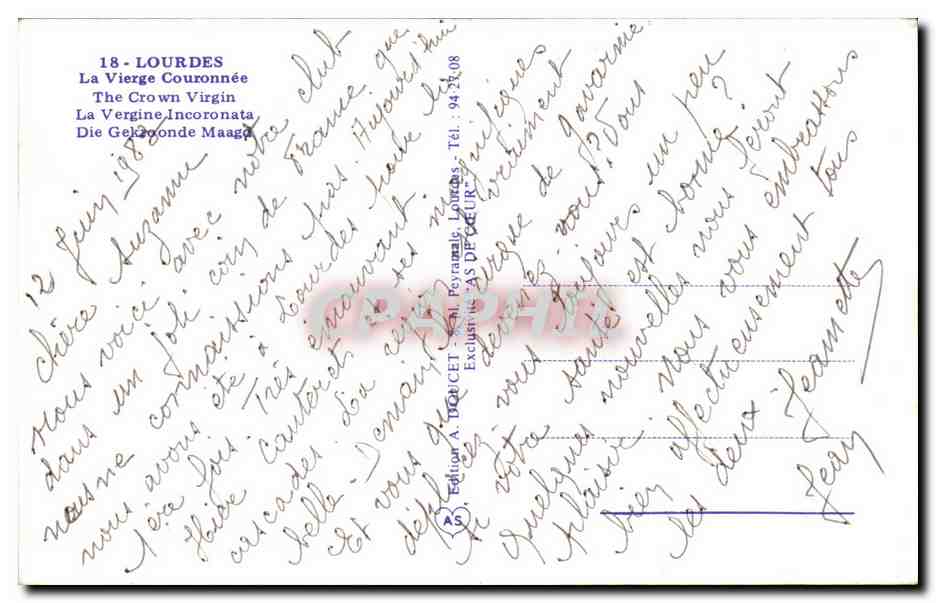 18 - LOURDES
La Vierge Couronnée
The Crown Virgin
La Vergine Incoronata
Die Gekroonde Maagd
12 Juin 1982
Chère Suzanne
Nous voici avec notre club
dans un joli coin de France que
nous ne connaissions pas. Aujourd'hui
nous avons été à Lourdes pour la
1ère fois. Très émouvant
Hier Cauterets et ses magnifiques
cascades. La région est vraiment
belle - Demain cirque de Gavarnie
Et vous que devenez-vous? Vous
déplacez-vous toujours un peu
Votre santé est bonne?
Quelques nouvelles nous feront
plaisir. Nous vous embrassons
bien affectueusement tous
les deux
Jeannette
Jean
Edition A. DOUCET - Pl. Peyramale, Lourdes - Tél. : 94-27-08
Exclusivité "AS DE CŒUR"
AS
CPAPHIL